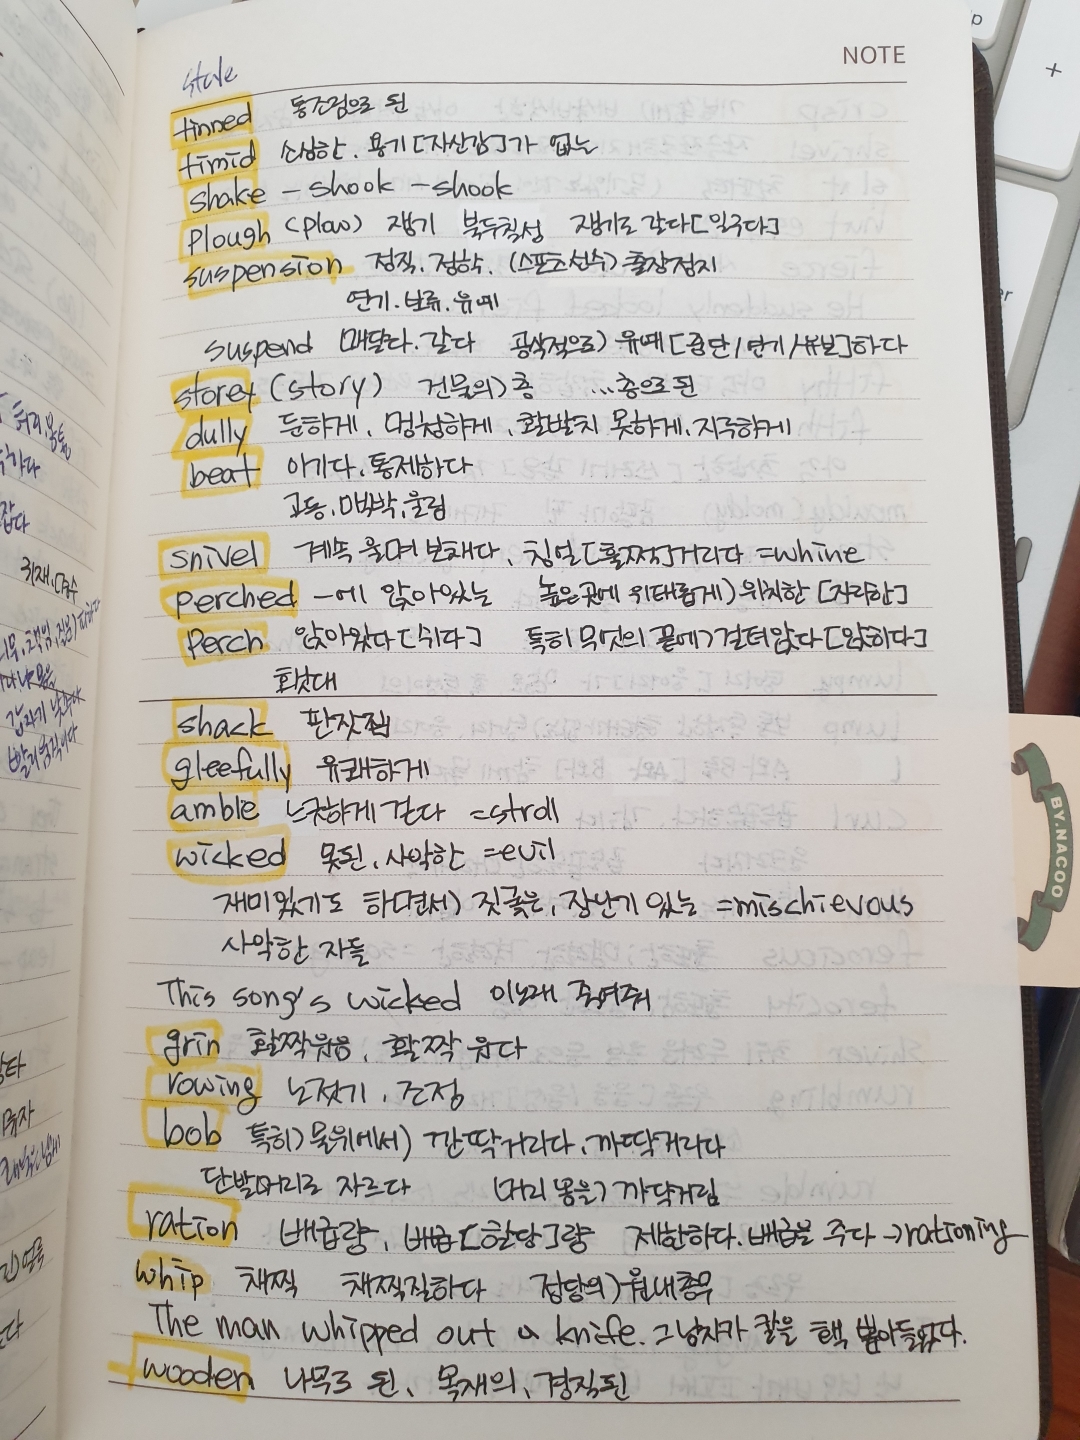 NOTE
tinned 통조림으로 된
timid 소심한, 용기[자신감]가 없는
shake - shook - shook
plough (plow) 쟁기 북두칠성 쟁기로 갈다[일구다]
suspension 정직, 정학, (스포츠선수) 출장정지
연기, 보류, 유예
suspend 매달다, 걸다 공식적으로) 유예[중단/연기/유보]하다
storey (story) 건물의) 층 ...층으로 된
dully 둔하게, 멍청하게, 활발치 못하게, 지루하게
beat 이기다, 통제하다
고동, 맥박, 울림
snivel 계속 울며 보채다, 칭얼[훌쩍]거리다 =whine
perched -에 앉아있는 높은곳에 위태롭게) 위치한 [자리한]
perch 앉아있다[쉬다] 특히 무엇의 끝에) 걸터앉다[앉히다]
횃대
shack 판잣집
gleefully 유쾌하게
amble 느긋하게 걷다 =stroll
wicked 못된, 사악한 =evil
재미있기도 하면서) 짓궂은, 장난기 있는 =mischievous
사악한 자들
This song's wicked 이노래 죽여줘
grin 활짝웃음, 활짝 웃다
rowing 노젓기, 조정
bob 특히) 물위에서) 깐딱거리다, 까딱거리다
단발머리로 자르다 (머리 몸을) 까닥거림
ration 배급량, 배급[할당]량 제한하다, 배급을 주다 →rationing
whip 채찍 채찍질하다 정당의) 원내총무
The man whipped out a knife. 그 남자가 칼을 핵 뽑아들었다.
wooden 나무로 된, 목재의, 경직된
BY.NACOO